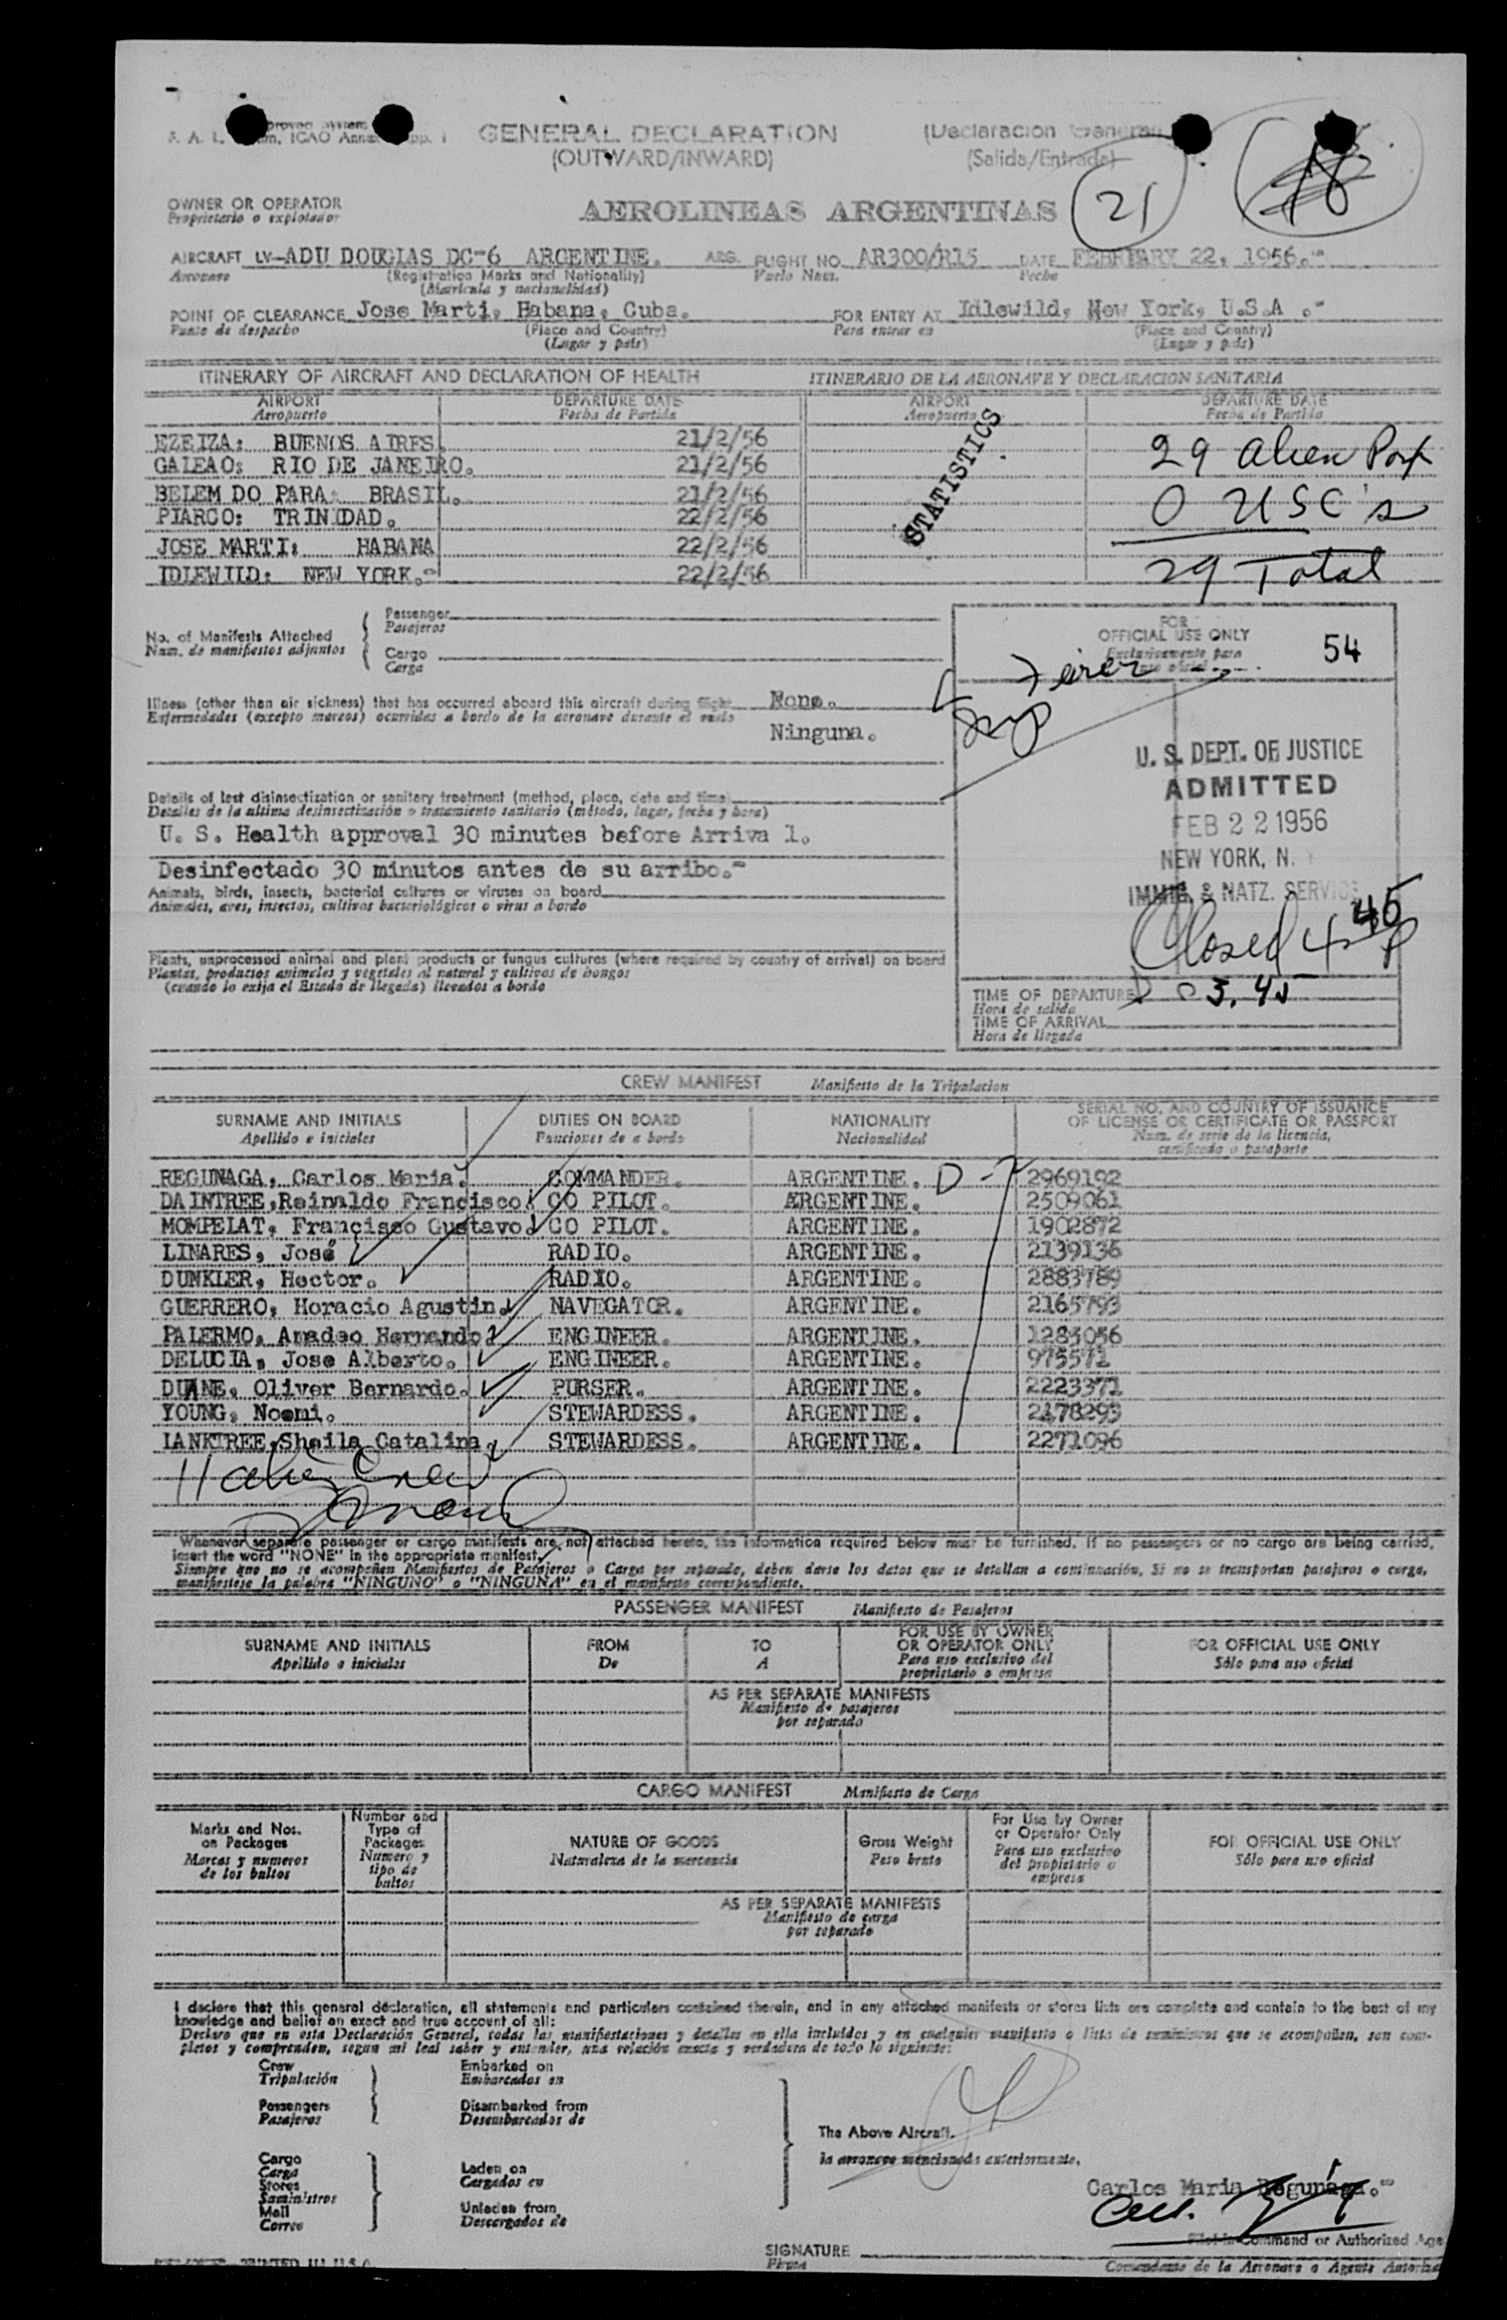 GENERAL DECLARATION (Declaracion General
(OUTWARD/INWARD) (Salida/Entrada)
21 18
OWNER OR OPERATOR
Proprietario o explotador
AEROLINEAS ARGENTINAS
AIRCRAFT LV-ADU DOUGLAS DC-6 ARGENTINE. ARG. FLIGHT NO. AR300/R15 DATE FEBRUARY 22, 1956.-
Aeronave (Registration Marks and Nationality) Vuelo Num. Fecha
(Matricula y nacionalidad)
POINT OF CLEARANCE Jose Marti, Habana, Cuba. FOR ENTRY AT Idlewild, New York, U.S.A .-
Punto de despacho (Place and Country) Para entrar en (Place and Country)
(Lugar y pais) (Lugar y pais)
ITINERARY OF AIRCRAFT AND DECLARATION OF HEALTH ITINERARIO DE LA AERONAVE Y DECLARACION SANITARIA
AIRPORT DEPARTURE DATE AIRPORT DEPARTURE DATE
Aeropuerto Fecha de Partida Aeropuerto Fecha de Partida
EZEIZA: BUENOS AIRES. 21/2/56
GALEAO: RIO DE JANEIRO. 21/2/56
BELEM DO PARA: BRASIL. 21/2/56
PIARCO: TRINIDAD. 22/2/56
JOSE MARTI: HABANA 22/2/56
IDLEWILD: NEW YORK.- 22/2/56
STATISTICS
29 alien Pax
0 USC's
29 Total
No. of Manifests Attached
Num. de manifiestos adjuntos
Passenger
Pasajeros
Cargo
Carga
FOR
OFFICIAL USE ONLY 54
Exclusivamente para
uso oficial
Illness (other than air sickness) that has occurred aboard this aircraft during flight None.
Enfermedades (excepto mareos) ocurridas a bordo de la aeronave durante el vuelo
Ninguna.
Details of last disinsectization or sanitary treatment (method, place, date and time)
Detalles de la ultima desinsectización o tratamiento sanitario (método, lugar, fecha y hora)
U. S. Health approval 30 minutes before Arriva l.
Desinfectado 30 minutos antes de su arribo.-
Animals, birds, insects, bacterial cultures or viruses on board
Animales, aves, insectos, cultivos bacteriológicos o virus a bordo
Plants, unprocessed animal and plant products or fungus cultures (where required by country of arrival) on board
Plantas, productos animales y vegetales al natural y cultivos de hongos
(cuando lo exija el Estado de llegada) llevados a bordo
U. S. DEPT. OF JUSTICE
ADMITTED
FEB 22 1956
NEW YORK, N.
IMMIG. & NATZ. SERVICE
Closed 4 45 P
TIME OF DEPARTURE 3.45
Hora de salida
TIME OF ARRIVAL
Hora de llegada
CREW MANIFEST Manifiesto de la Tripulacion
SURNAME AND INITIALS DUTIES ON BOARD NATIONALITY SERIAL NO. AND COUNTRY OF ISSUANCE
OF LICENSE OR CERTIFICATE OR PASSPORT
Apellido e iniciales Funciones de a bordo Nacionalidad Num. de serie de la licencia,
certificado o pasaporte
REGUNAGA, Carlos Maria. COMMANDER. ARGENTINE. D - 2969192
DAINTREE,Reinaldo Francisco. CO PILOT. ARGENTINE. 2509061
MOMPELAT, Francisco Gustavo. CO PILOT. ARGENTINE. 1902872
LINARES, José RADIO. ARGENTINE. 2139136
DUNKLER, Hector. RADIO. ARGENTINE. 2883789
GUERRERO, Horacio Agustin. NAVEGATOR. ARGENTINE. 2165793
PALERMO, Amadeo Hernando. ENGINEER. ARGENTINE. 1283056
DELUCIA, Jose Alberto. ENGINEER. ARGENTINE. 975572
DUANE, Oliver Bernardo. PURSER. ARGENTINE. 2223371
YOUNG, Noemi. STEWARDESS. ARGENTINE. 2178293
IANKTREE,Sheila Catalina. STEWARDESS. ARGENTINE. 2271096
11 alien Crew
Whenever separate passenger or cargo manifests are not attached hereto, the information required below must be furnished. If no passengers or no cargo are being carried,
insert the word "NONE" in the appropriate manifest.
Siempre que no se acompañen Manifiestos de Pasajeros o Carga por separado, deben darse los datos que se detallan a continuación. Si no se transportan pasajeros o carga,
manifiestese la palabra "NINGUNO" o "NINGUNA" en el manifiesto correspondiente.
PASSENGER MANIFEST Manifiesto de Pasajeros
SURNAME AND INITIALS FROM TO FOR USE BY OWNER
OR OPERATOR ONLY FOR OFFICIAL USE ONLY
Apellido e iniciales De A Para uso exclusivo del
propietario o empresa Sólo para uso oficial
AS PER SEPARATE MANIFESTS
Manifiesto de pasajeros
por separado
CARGO MANIFEST Manifiesto de Carga
Marks and Nos.
on Packages
Marcas y numeros
de los bultos
Number and
Type of
Packages
Numero y
tipo de
bultos
NATURE OF GOODS
Naturaleza de la mercancia
Gross Weight
Peso bruto
For Use by Owner
or Operator Only
Para uso exclusivo
del propietario o
empresa
FOR OFFICIAL USE ONLY
Sólo para uso oficial
AS PER SEPARATE MANIFESTS
Manifiesto de carga
por separado
I declare that this general declaration, all statements and particulars contained therein, and in any attached manifests or stores lists are complete and contain to the best of my
knowledge and belief an exact and true account of all:
Declaro que en esta Declaración General, todas las manifestaciones y detalles en ella incluidos y en cualquier manifiesto o lista de suministros que se acompañen, son com-
pletos y comprenden, segun mi leal saber y entender, una relación exacta y verdadera de todo lo siguiente:
Crew Embarked on
Tripulación Embarcados en
Passengers Disembarked from
Pasajeros Desembarcados de
The Above Aircraft.
la aeronave mencionada anteriormente.
Cargo Laden on
Carga Cargados en
Stores
Suministros
Mail Unladen from
Correo Descargados de
Carlos Maria Regunaga.-
Pilot in Command or Authorized Age
SIGNATURE
Firma Comandante de la Aeronave o Agente Autoriza